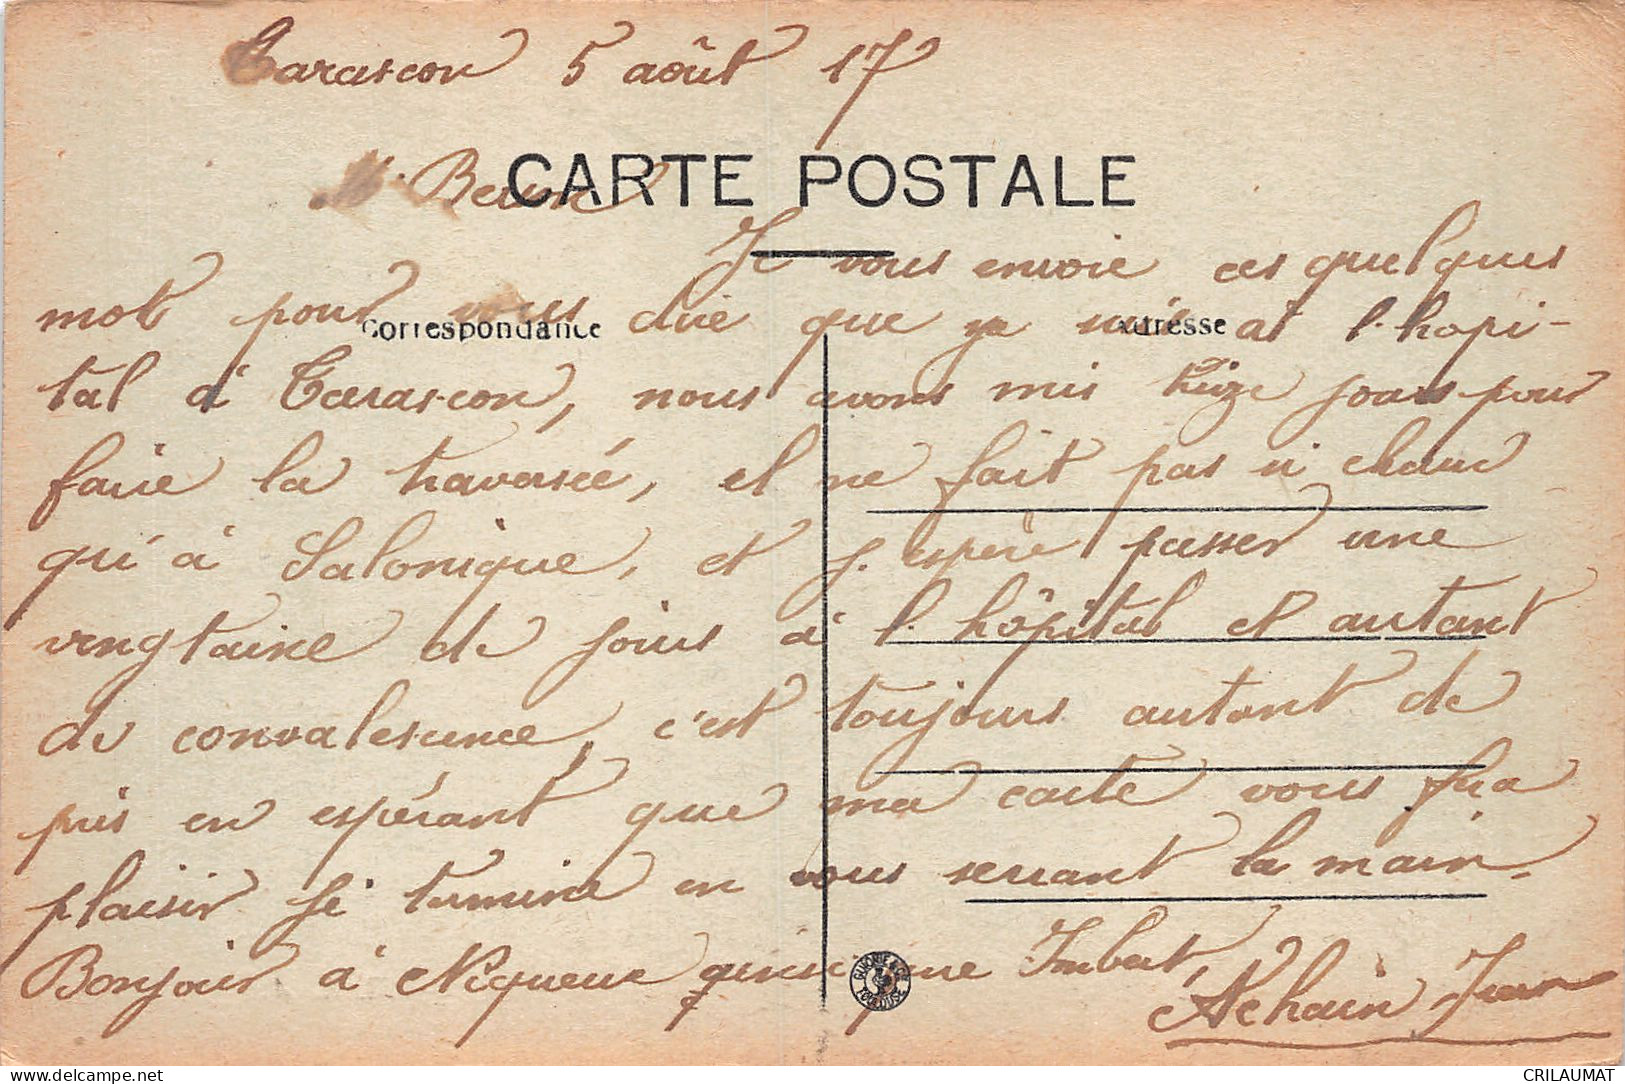 Tarascon 5 août 17
CARTE POSTALE
Mr Brun
Je vous envoie ces quelques
mot pour vous dire que je suis at l'hopi-
Correspondance
Adresse
tal à Tarascon, nous avons mis treize jours pour
faire la traversée, el ne fait pas si chaud
qu'à Salonique, et j'espère passer une
vingtaine de jours à l'hôpital et autant
de convalescence, c'est toujours autant de
pris en espérant que ma carte vous fera
plaisir Je termine en vous serrant la main.
Bonjour à Niqueux Imbert,
Jean
GUIONIE & Cie
TOULOUSE
CRILAUMAT